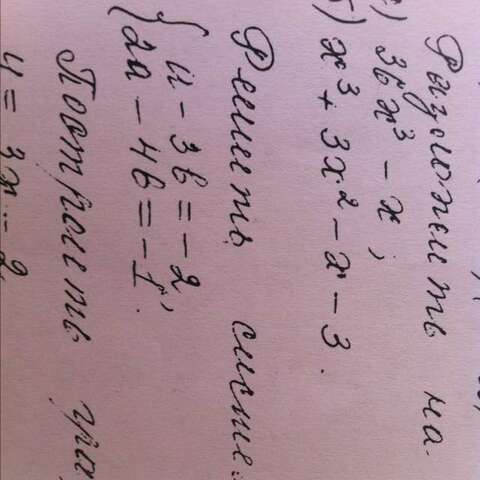 Разложить на
а) 36x³ - x;
б) x³ + 3x² - x - 3.
Решить систе
{ u - 3b = -2,
{ 2u - 4b = -1.
Построить гра
y = 3x - 2